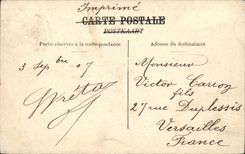 Imprimé
CARTE POSTALE
POSTKAART
Partie réservée à la correspondance
Adresse du destinataire
3 Sepbre 07
Monsieur
Victor
fils
27 rue Duplessis
Versailles
France